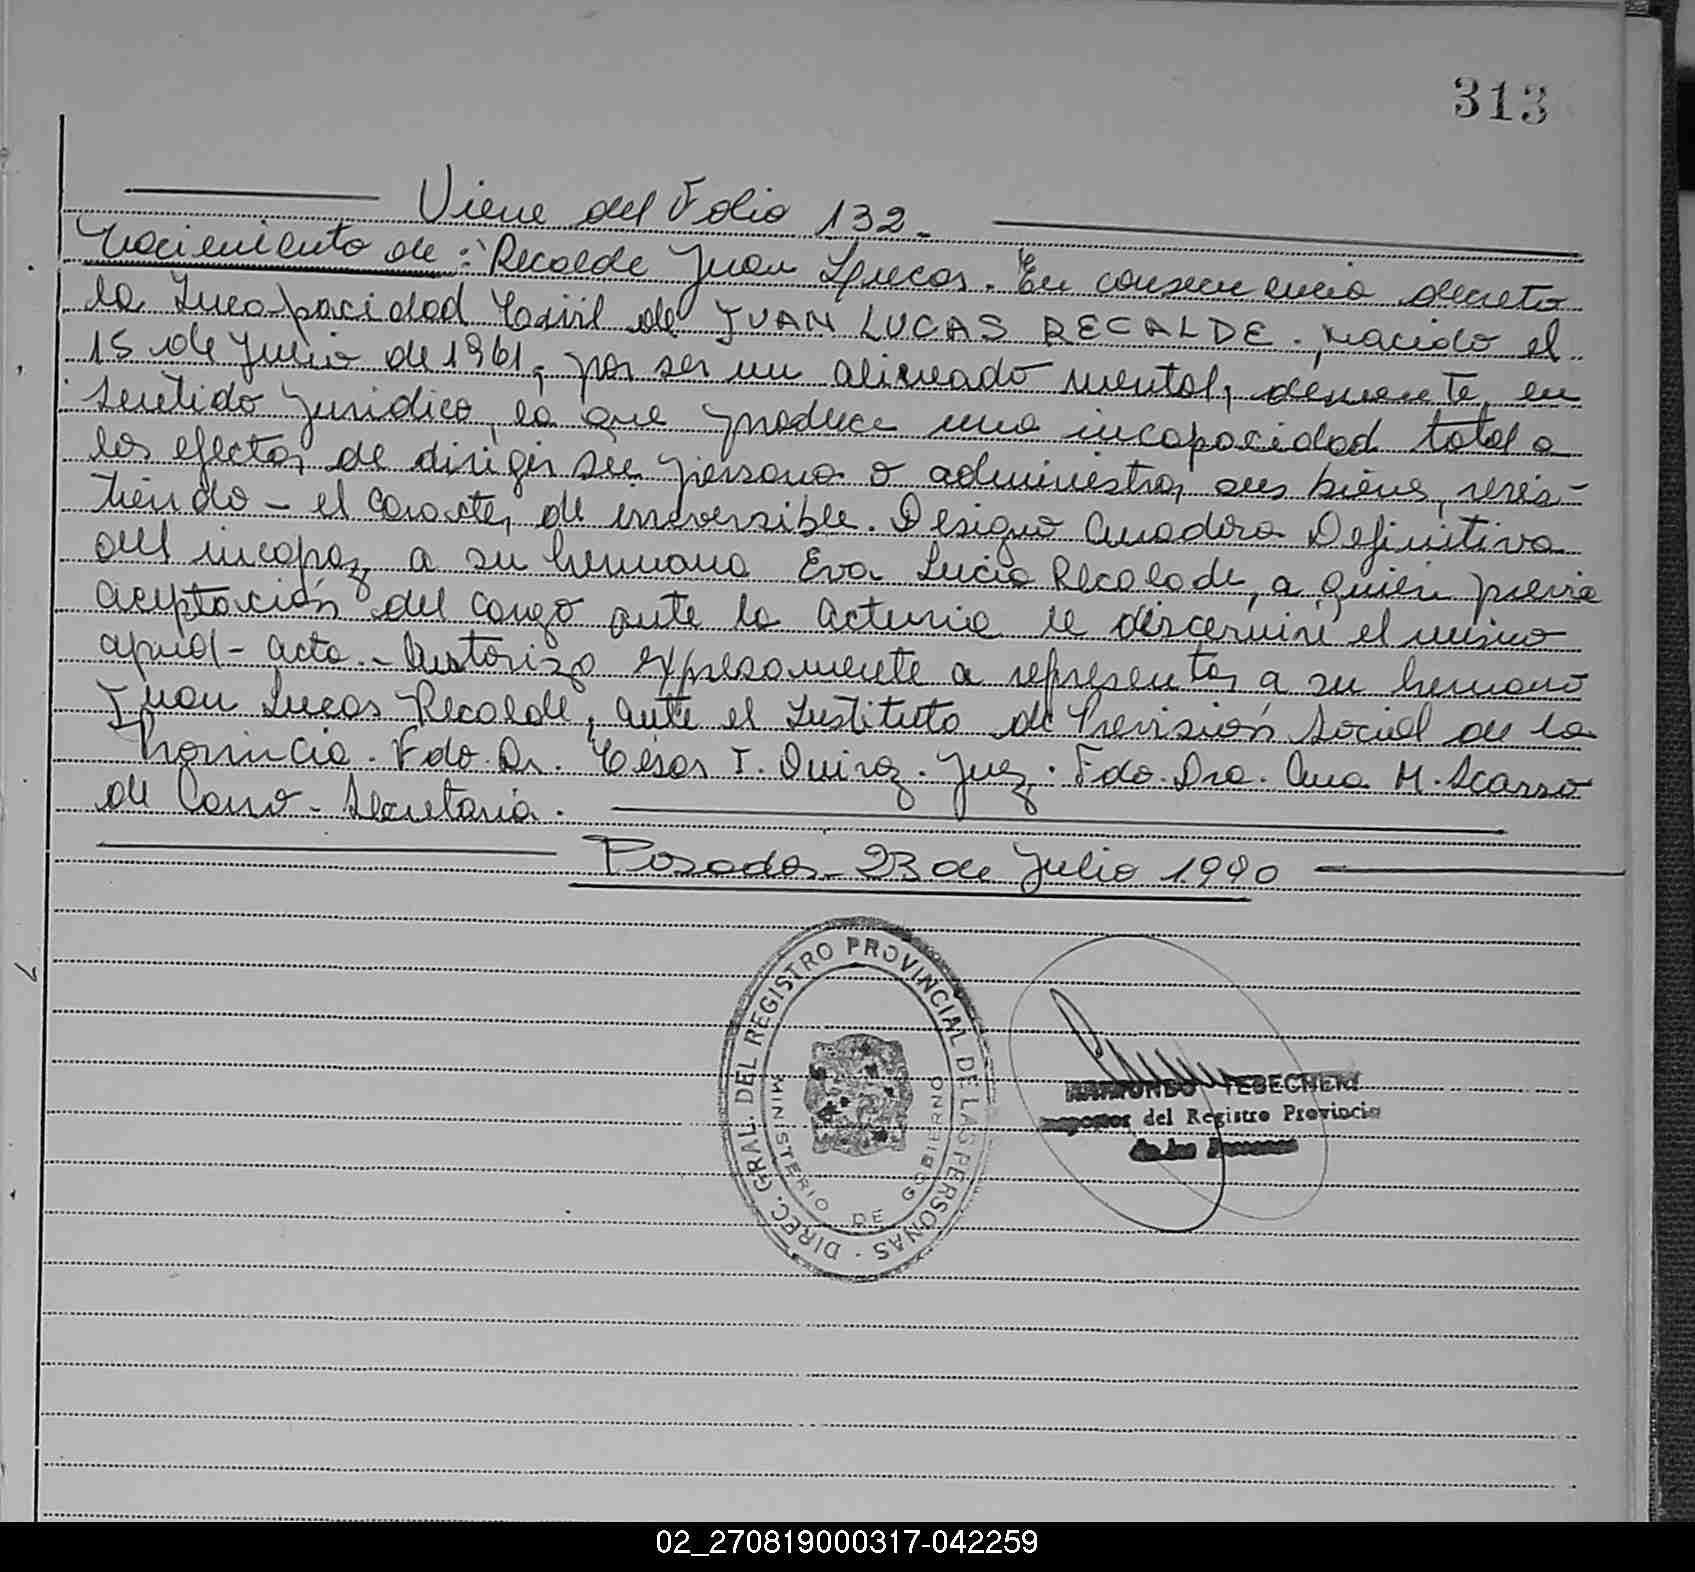 313
Viene del Folio 132.-
Nacimiento de: Recalde Juan Lucas. En consecuencia decreto
la Incapacidad Civil de JUAN LUCAS RECALDE., nacido el
15 de Junio de 1961, por ser un alienado mental, demente, en
sentido jurídico, lo que produce una incapacidad total a
los efectos de dirigir su persona o administrar sus bienes, revis-
tiendo - el caracter de irreversible. Designo Curadora Definitiva
del incapaz a su hermana Eva Lucia Recalde, a quien previa
aceptación del cargo ante la Actuaria se discernirá el mismo
apud-acta.- Autorizo expresamente a representar a su hermano
Juan Lucas Recalde, ante el Instituto de Previsión Social de la
Provincia. Fdo. Dr. César I. Quiroz. Juez. Fdo. Dra. Ana M. Scarso
de - Secretaria.
Posadas - 23 de Julio 1990
DIREC. GRAL. DEL REGISTRO PROVINCIAL DE LAS PERSONAS
MINISTERIO DE GOBIERNO
RAIMUNDO TEBECHERI
del Registro Provincia
de las Personas
02_270819000317-042259